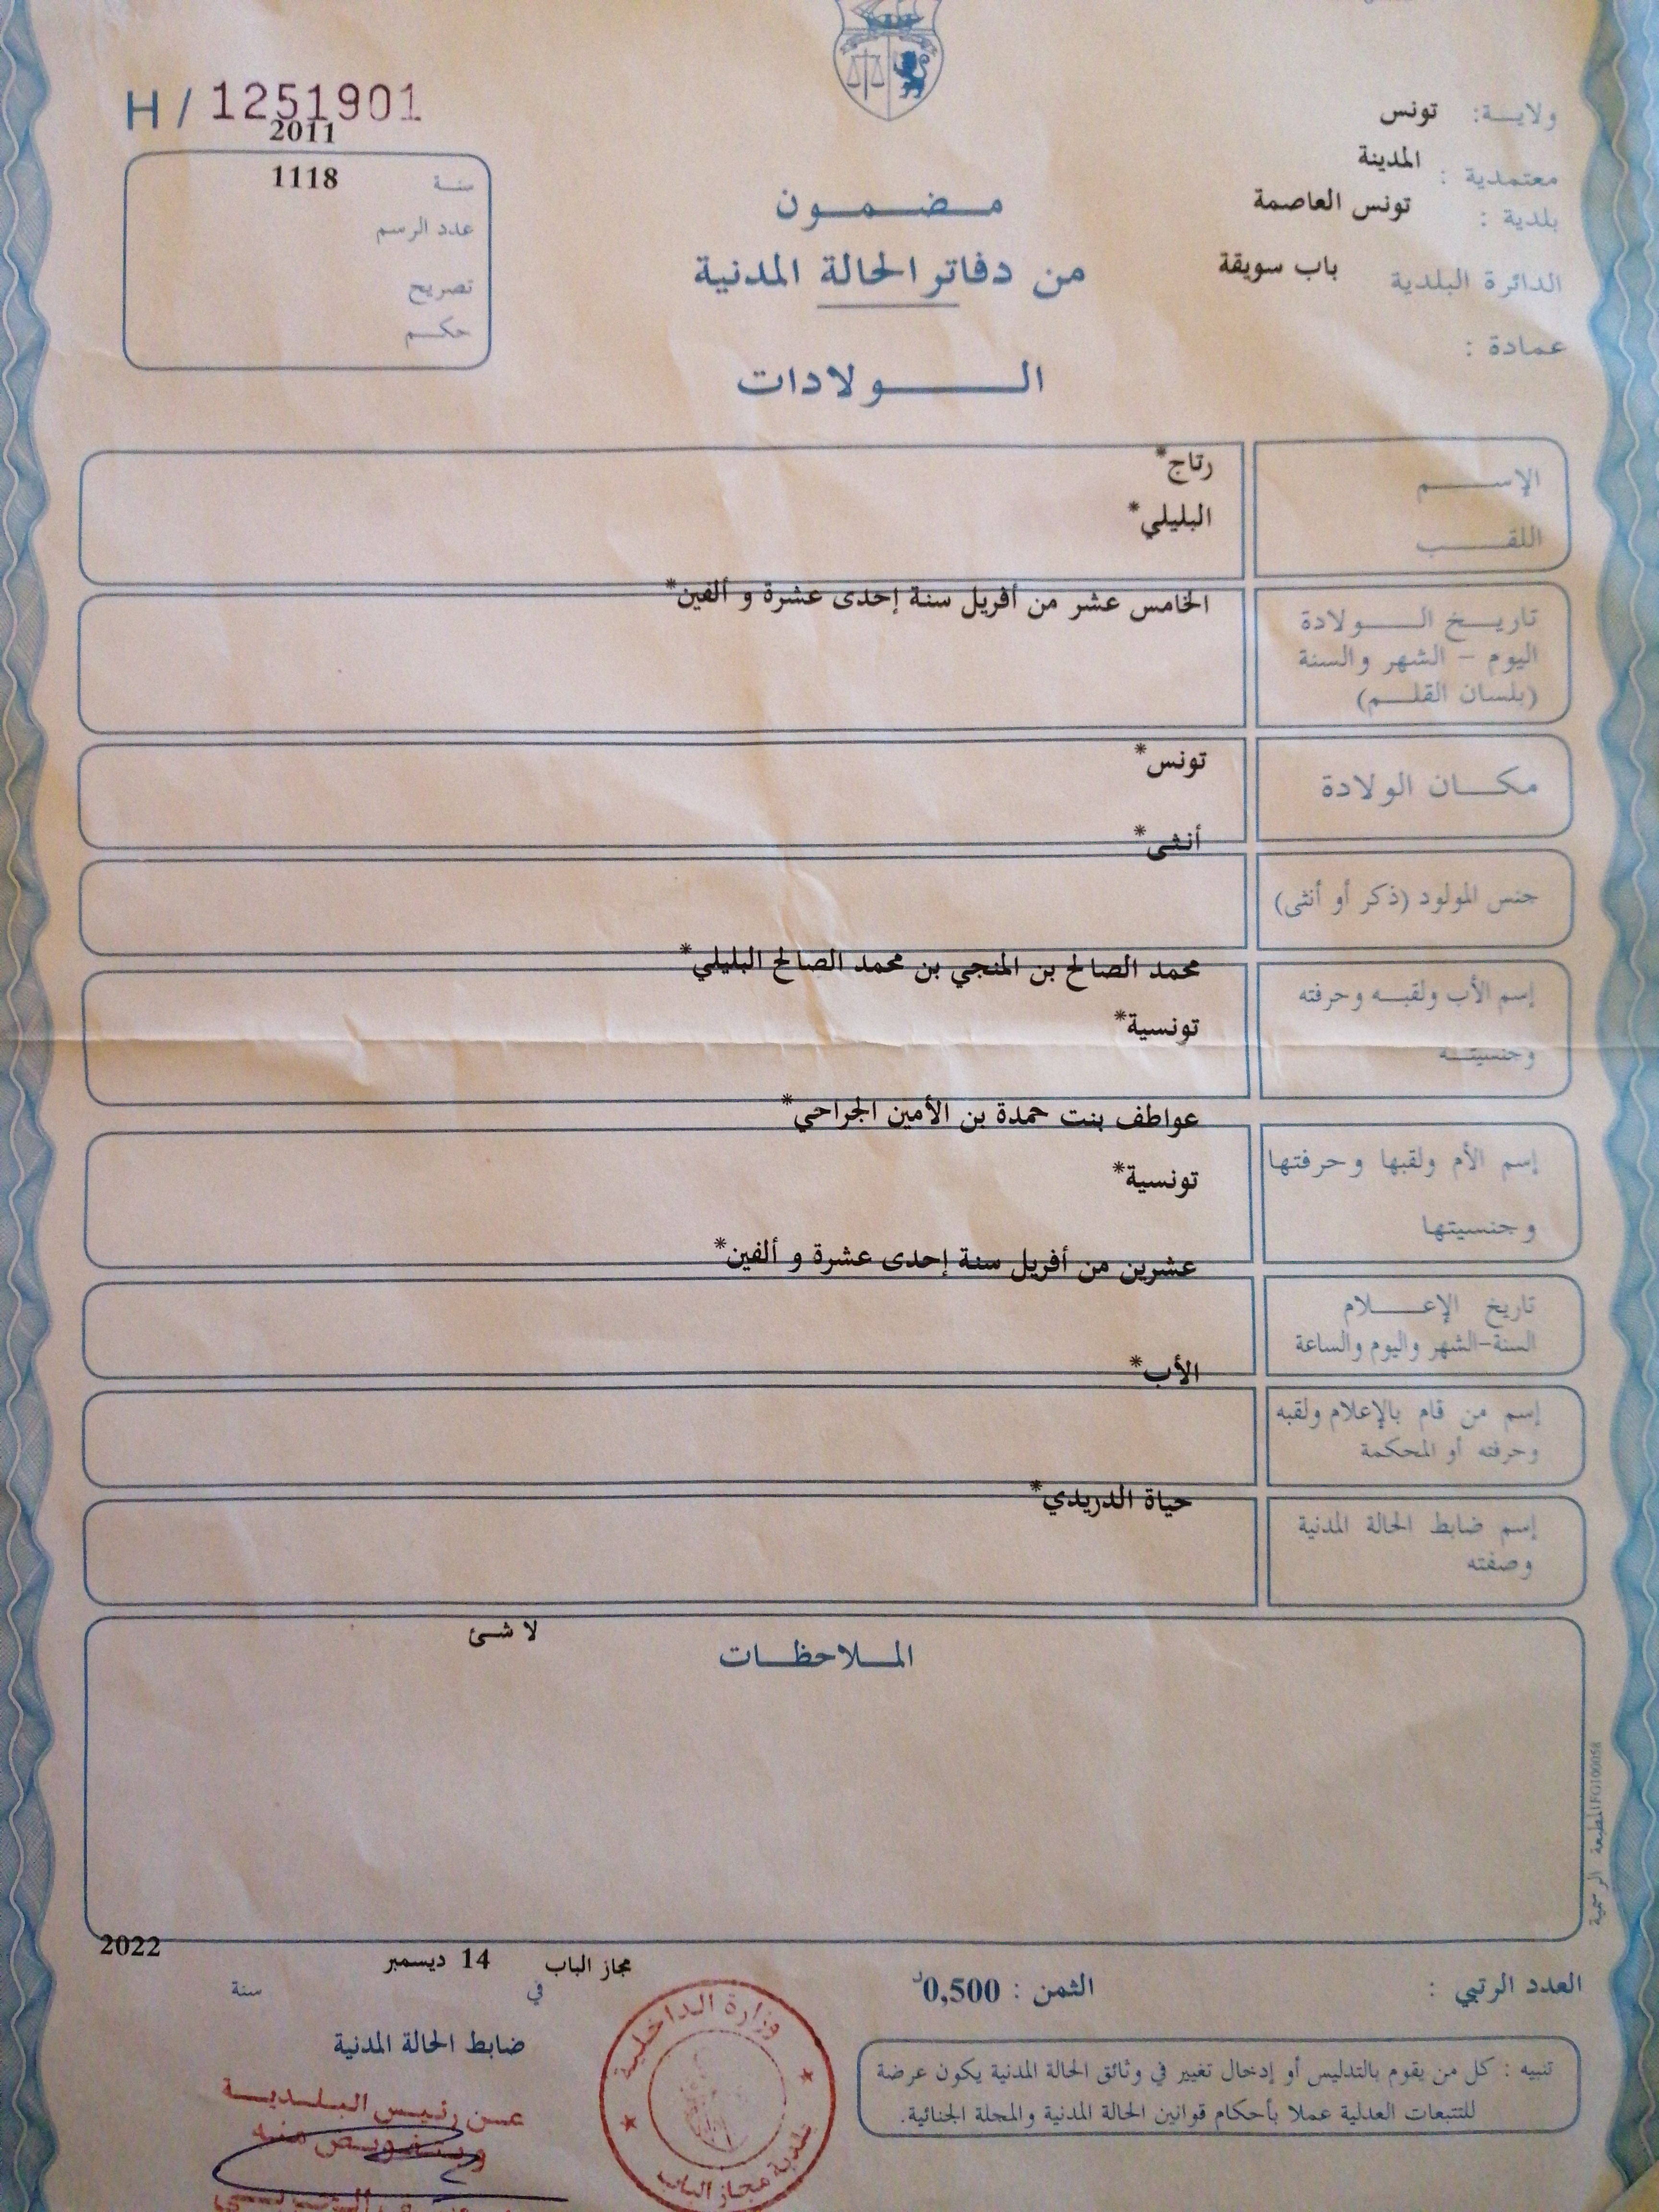 H / 1251901
2011
سنة 1118
عدد الرسم
تصريح
حكم
ولاية: تونس
معتمدية : المدينة
بلدية : تونس العاصمة
الدائرة البلدية باب سويقة
عمادة :
مضمون
من دفاتر الحالة المدنية
الولادات
الإسم رتاج*
اللقب البليلي*
الخامس عشر من أفريل سنة إحدى عشرة و ألفين*
تاريخ الولادة
اليوم - الشهر والسنة
(بلسان القلم)
تونس*
مكان الولادة
أنثى*
جنس المولود (ذكر أو أنثى)
محمد الصالح بن المنجي بن محمد الصالح البليلي*
إسم الأب ولقبه وحرفته
تونسية*
وجنسيته
عواطف بنت حمدة بن الأمين الجراحي*
إسم الأم ولقبها وحرفتها
تونسية*
وجنسيتها
عشرين من أفريل سنة إحدى عشرة و ألفين*
تاريخ الإعلام
السنة-الشهر واليوم والساعة
الأب*
إسم من قام بالإعلام ولقبه
وحرفته أو المحكمة
حياة الدريدي*
إسم ضابط الحالة المدنية
وصفته
لا شئ
الملاحظات
المطبعة الرسمية FG100058
مجاز الباب 14 ديسمبر 2022
في سنة
العدد الرتبي :
الثمن : 0,500د
ضابط الحالة المدنية
عن رئيس البلدية
وبتفويض منه
وزارة الداخلية
بلدية مجاز الباب
تنبيه : كل من يقوم بالتدليس أو إدخال تغيير في وثائق الحالة المدنية يكون عرضة
للتتبعات العدلية عملا بأحكام قوانين الحالة المدنية والمجلة الجنائية.